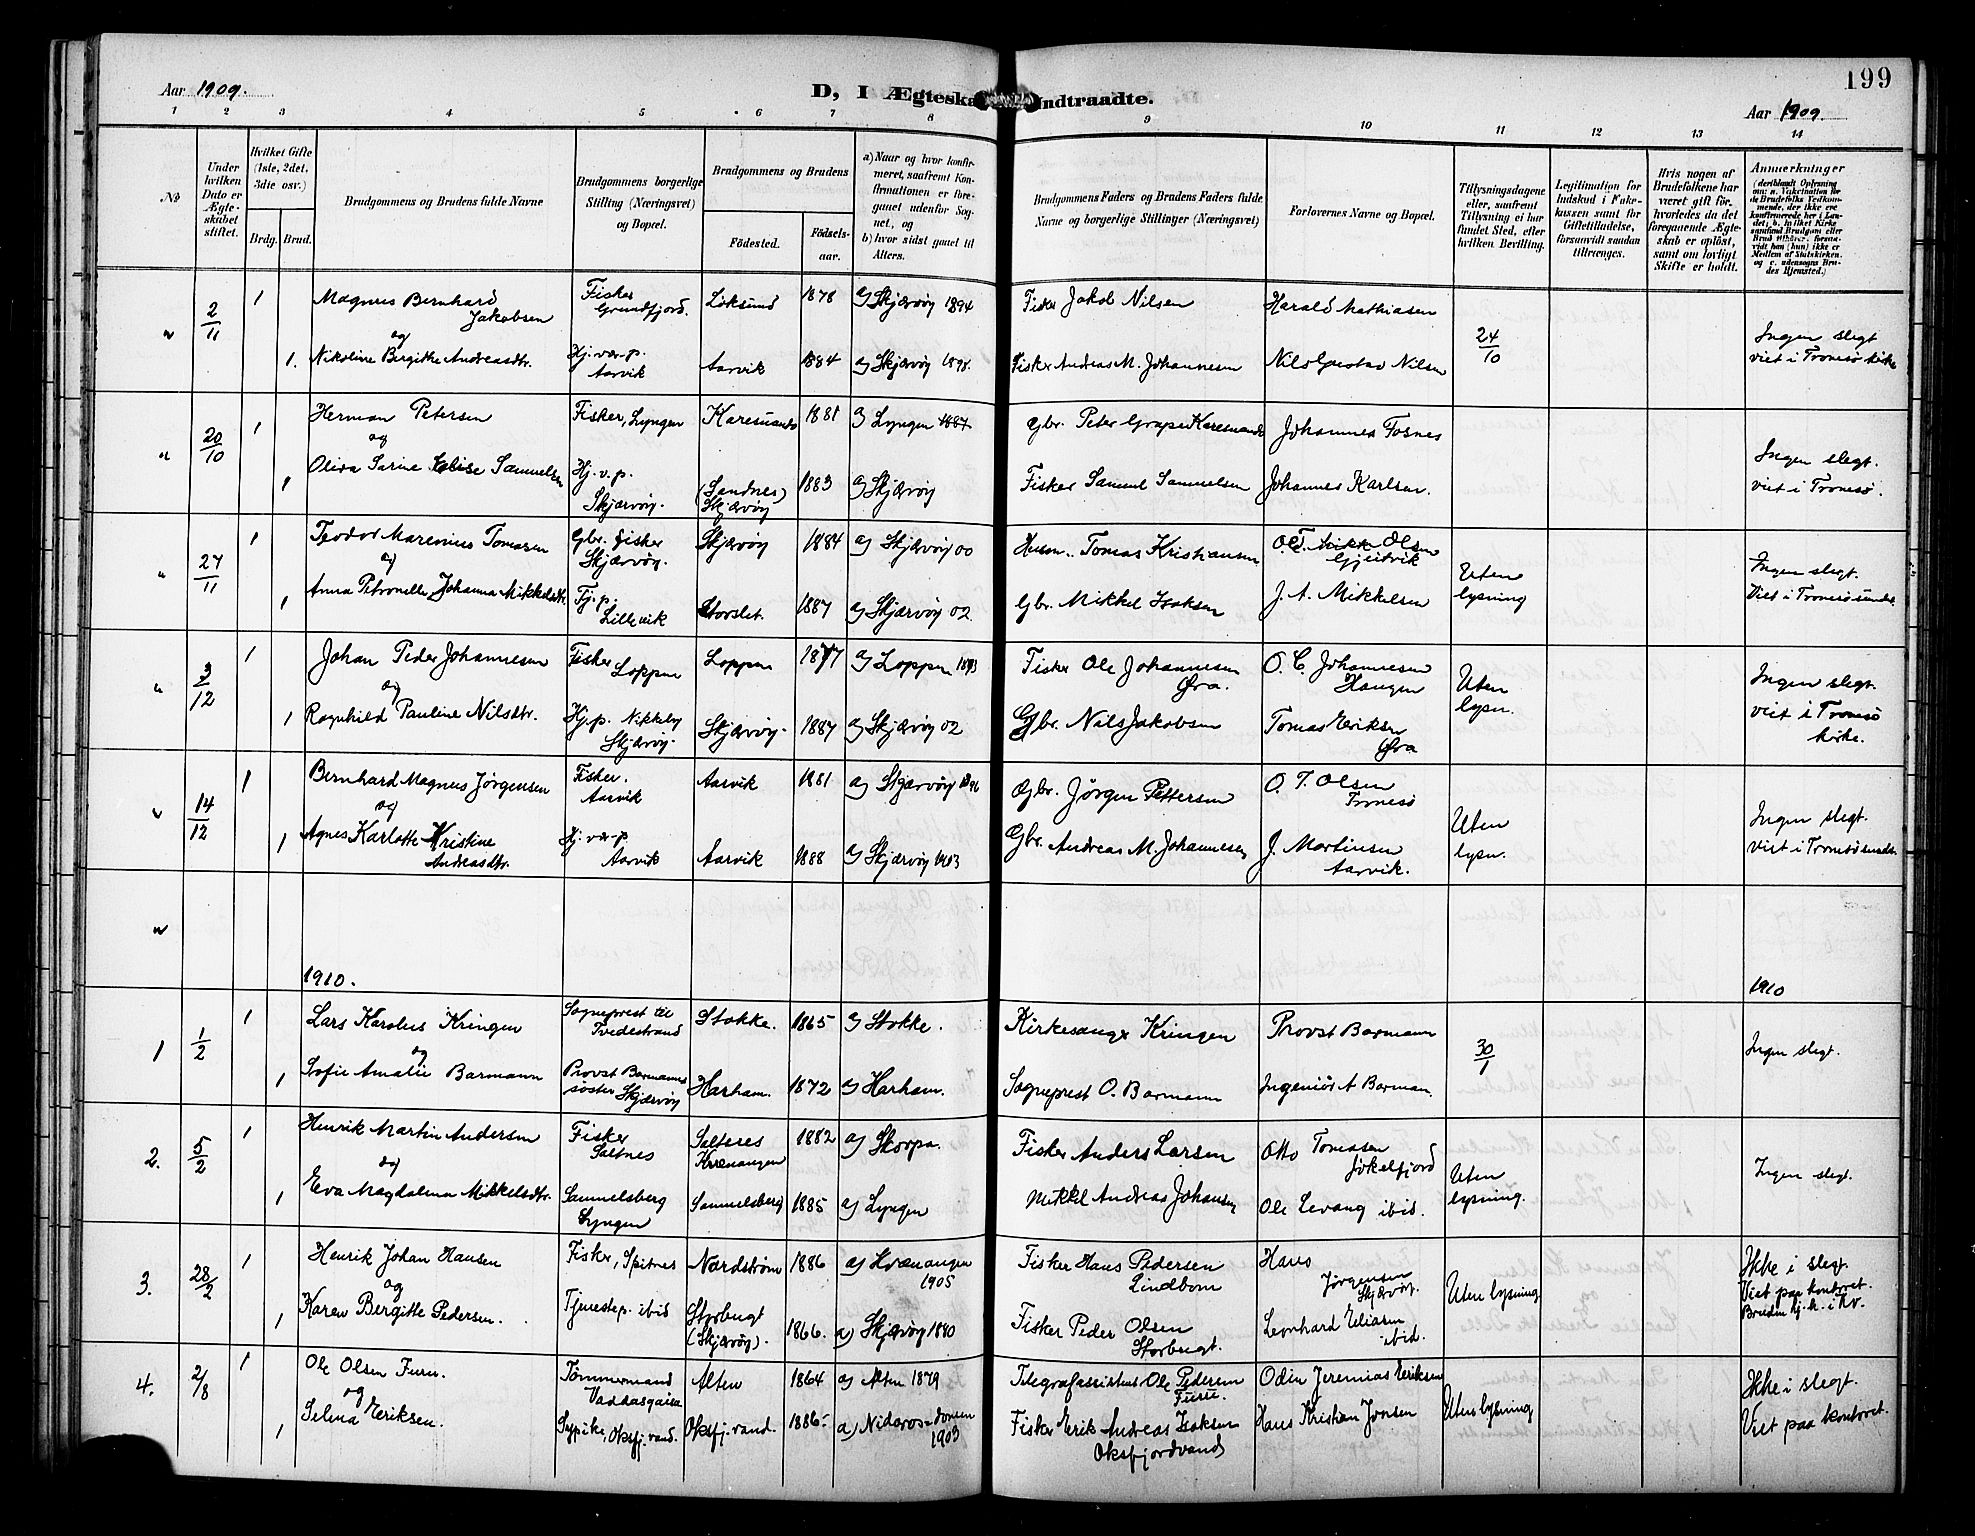 199
Aar 1909.
D, I Ægteska ndtraadte.
Aar 1909.
1 2 3 4 5 6 7 8 9 10 11 12 13 14
No
Under hvilken Dato er Ægteskabet stiftet.
Hvilket Gifte (1ste, 2det, 3die osv.)
Brdg. Brud.
Brudgommens og Brudens fulde Navne
Brudgommens borgerlige Stilling (Næringsvei) og Bopæl.
Brudgommens og Brudens
Födested.
Födselsaar.
a) Naar og hvor konfirmeret, saafremt Konfirmationen er foregaaet udenfor Sognet, og
b) hvor sidst gaaet til Alters.
Brudgommens Faders og Brudens Faders fulde Navne og borgerlige Stillinger (Næringsvei)
Forlovernes Navne og Bopæl.
Tillysningsdagene eller, saafremt Tillysning ei har fundet Sted, efter hvilken Bevilling.
Legitimation for Indskud i Enkekassen samt for Giftetilladelse, forsaavidt saadan tiltrænges.
Hvis nogen af Brudefolkene har været gift før, hvorledes da det foregaaende Ægteskab er oplöst, samt om lovligt Skifte er holdt.
Anmærkninger
" 2/11 1 Magnus Bernhard Jakobsen Fisker Grundfjord. Löksund 1878 a) Skjærvöy 1894 Fisker Jakob Nilsen Harald Mathiasen 24/10 Ingen slegt
og
1. Nikoline Bergitte Andreasdtr. Hj. vær. p. Aarvik Aarvik 1884 a) Skjærvöy 1898. Fisker Andreas M. Johannesen Nils Gustav Nilsen viet i Tromsö kirke
" 20/10 1 Herman Petersen Fisker, Lyngen Karesuando 1881 a) Lyngen 1887 Gbr. Peter Grape Karesuando Johannes Fosnes Ingen slegt.
og
1 Oliva Sarine Elise Samuelsen Hj. v. p. Skjærvöy. (Sandnes) Skjærvöy 1883 a) Skjærvöy Fisker Samuel Samuelsen Johannes Karlsen. viet i Tromsö.
" 27/11 1 Teodor Marenius Tomasen Gbr. fisker Skjærvöy. Skjærvöy 1884 a) Skjærvöy 00 Husm. Tomas Kristiansen Ole Mikk Olsen Gjeitvik Uten lysning Ingen slegt.
og
1 Anna Petronelle Johanna Mikkelsdtr. Tj. p. Lillevik Storslet. 1887 a) Skjærvöy 02. Gbr. Mikkel Isaksen J. A. Mikkelsen Viet i Tromsösundet
" 3/12 1 Johan Peder Johannesen Fisker Loppen Loppen 1877 a) Loppen 1893 Fisker Ole Johannesen Øra. O. C. Johannesen Haugen Uten lysn. Ingen slegt.
og
1 Ragnhild Pauline Nilsdtr. Hj. p. Nikkeby Skjærvöy. Skjærvöy. 1887 a) Skjærvöy 02 Gbr. Nils Jakobsen Tomas Eriksen Øra viet i Tromsö kirke.
" 14/12 1 Bernhard Magnus Jørgensen Fisker. Aarvik Aarvik 1881 a) Skjærvöy 1896 Gbr. Jørgen Pettersen O. T. Olsen Tromsö Uten lysn. Ingen slegt.
og
1 Agnes Karlotte Kristine Andreasdtr. Hj. vær. p Aarvik Aarvik 1888 a) Skjærvöy 1903 Gbr. Andreas M. Johannesen J. Martinsen Aarvik. viet i Tromsösundet.
"
1910. 1910
1 1/2 1 Lars Karolus Kringen Sogneprest til Tvedestrand Stokke. 1865 a) Stokke. Kirkesanger Kringen Provst Barmann 30/1 Ingen slegt.
og
1 Sofie Amalie Barmann Provst Barmanns söster Skjærvöy Harham. 1872 a) Harham. Sogneprest O. Barmann Ingeniör A Barman.
2. 5/2 1 Henrik Martin Andersen Fisker Saltnes Saltnes Kvænangen 1882 a) Skorpa. Fisker Anders Larsen Otto Tomassen Jökelfjord Uten lysning. Ingen slegt.
og
1 Eva Magdalena Mikkelsdtr. Samuelsberg Lyngen Samuelsberg 1885 a) Lyngen Mikkel Andreas Johansen Ole Levang ibid.
3. 28/2 1 Henrik Johan Hansen Fisker, Spitnes Nordström 1886 a) Kvænangen 1905 Fisker Hans Pedersen Lindbom Hans Jørgensen Skjærvöy. Uten lysning Ikke i slegt
og
1 Karen Bergitte Pedersen. Tjenestep. ibid Storbugt (Skjærvöy). 1866. a) Skjærvöy 1880 Fisker Peder Olsen Storbugt. Leonhard Eliasen ibid. Viet paa kontoret. Bruden hj. h. i Kv.
4. 2/8 1 Ole Olsen Furu. Tømmermand Vaddasgaisa Alten 1864 a) Alten 1879 Telegrafassistent Ole Pedersen Furu. Odin Jeremias Eriksen Uten lysning Ikke i slegt.
og
1 Selma Eriksen. Sypike, Oksfj. vand. Oksfj. vand. 1886. a) Nidaros-domen 1903 Fisker Erik Andreas Isaksen Oksfjordvand Hans Kristian Jensen Viet paa kontoret.